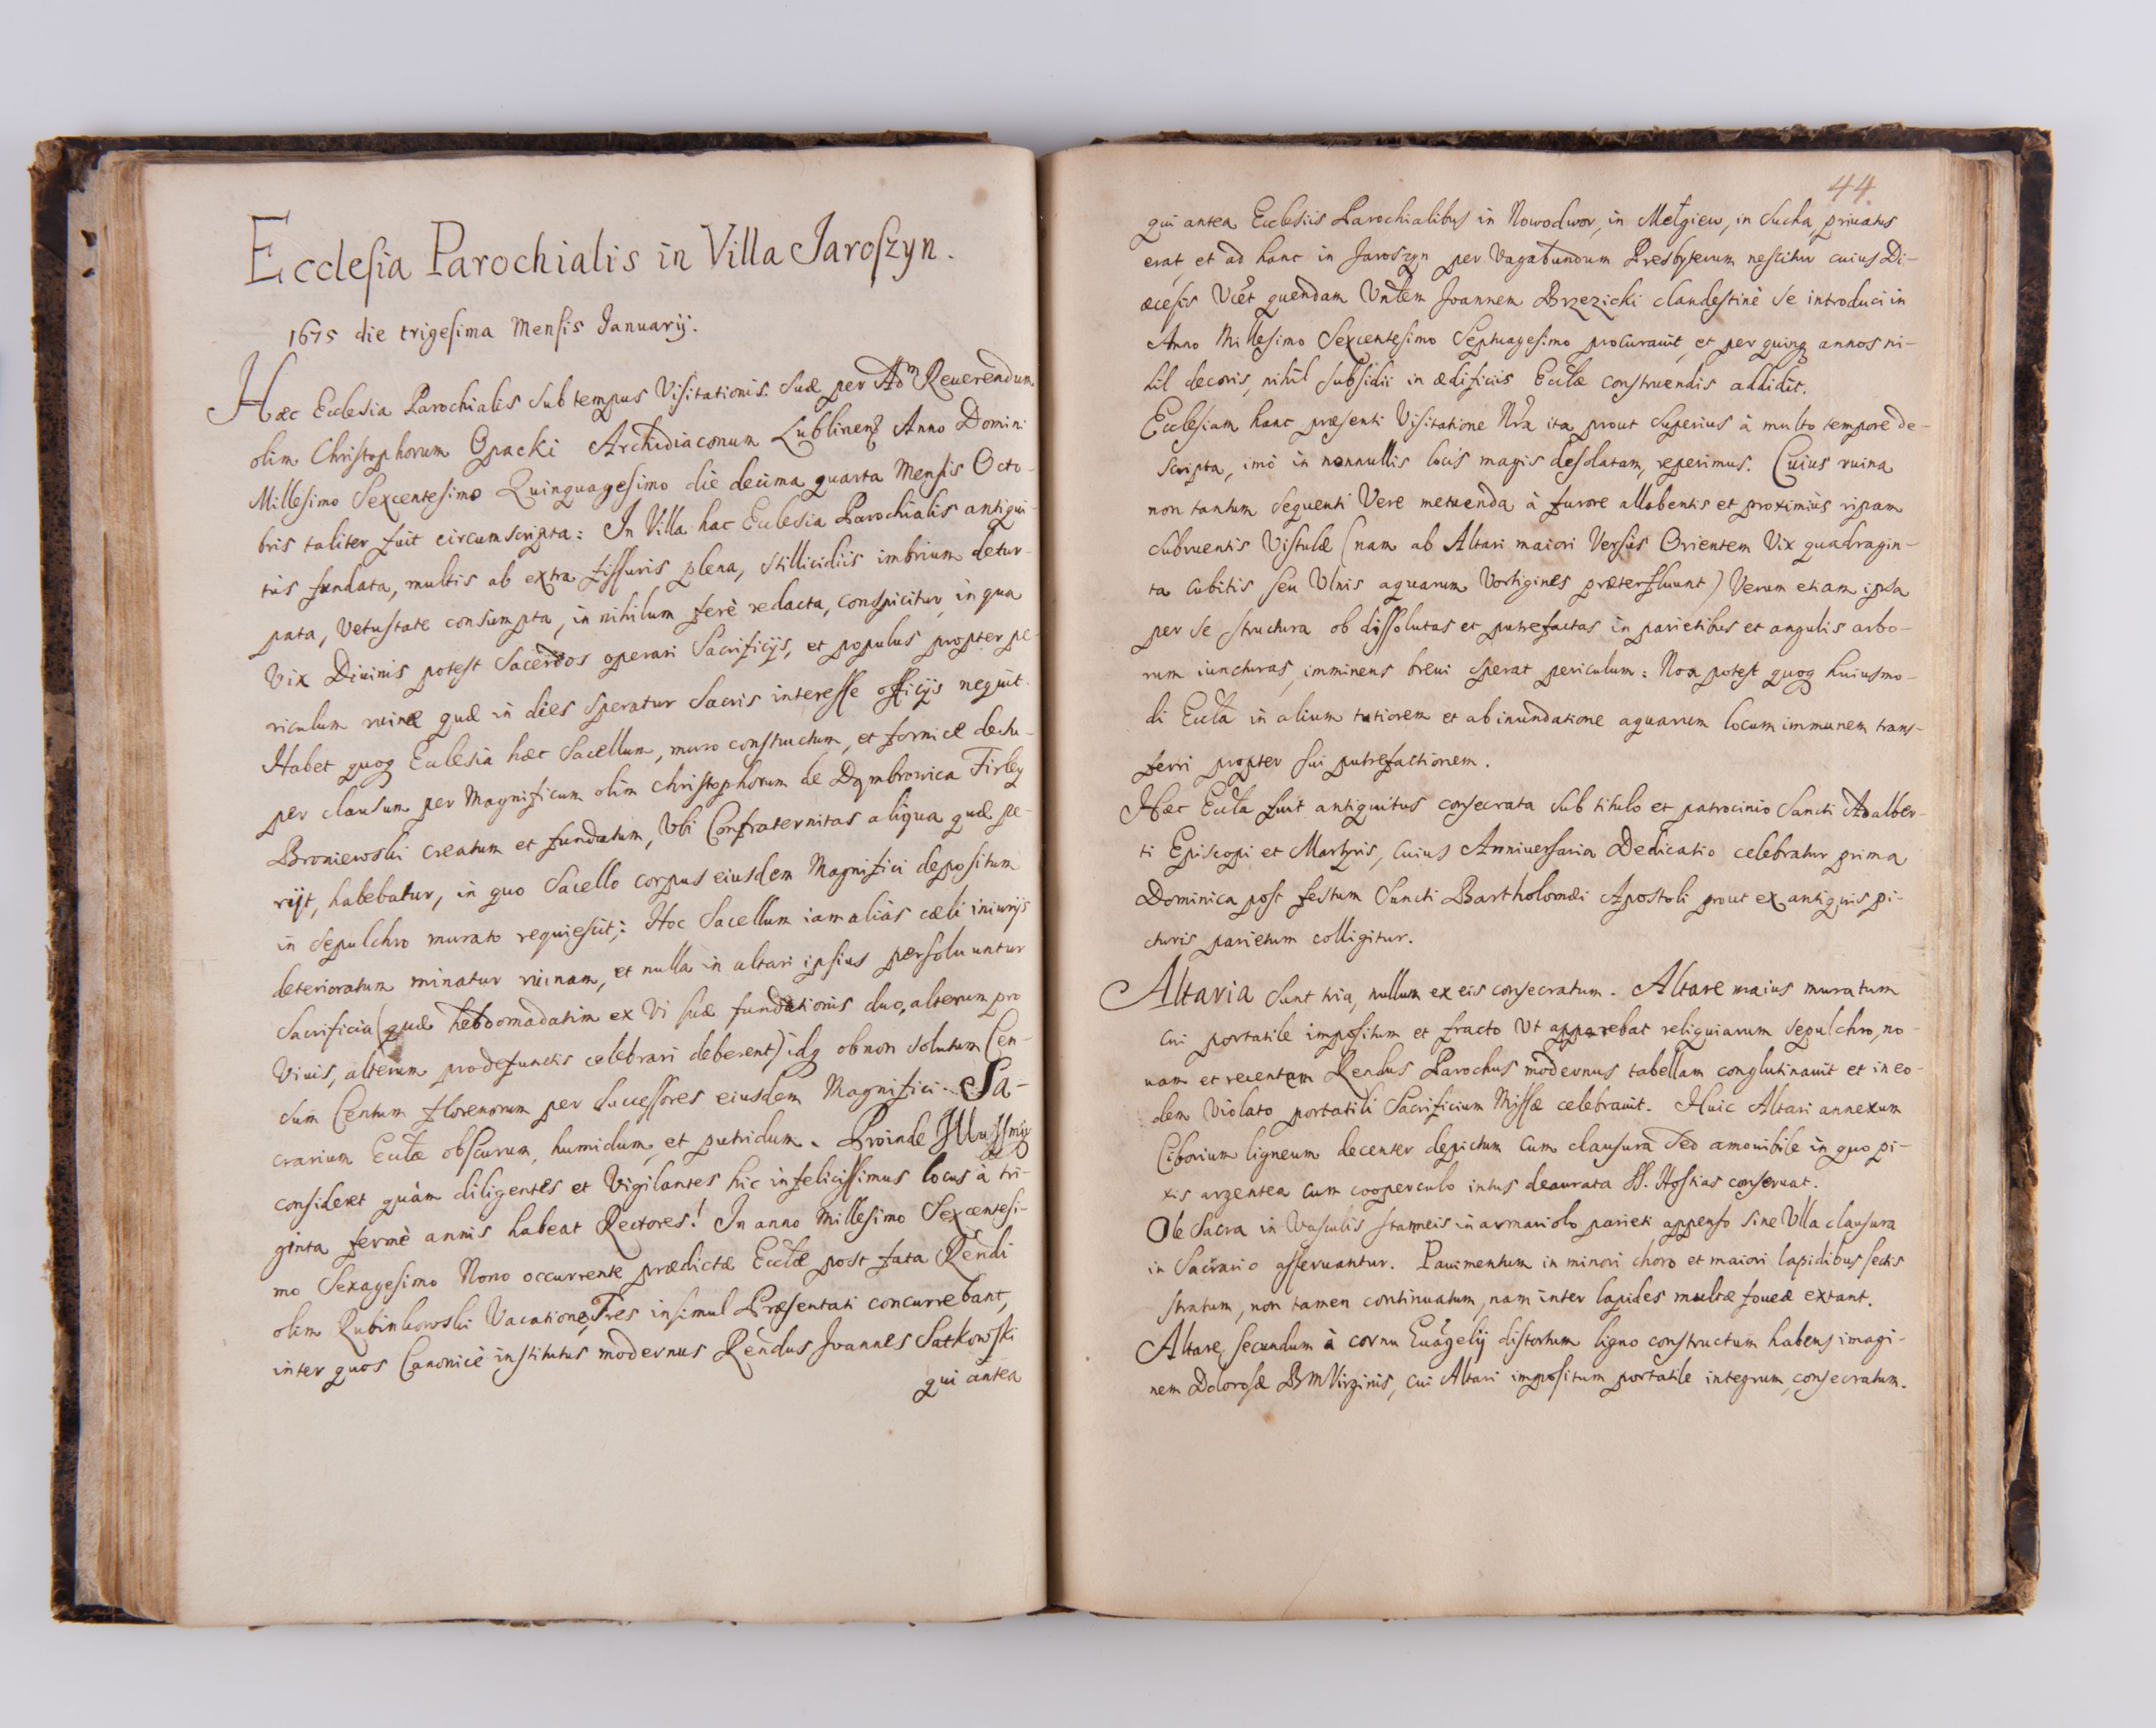 Ecclesia Parochialis in Villa Jaroszyn.
1675 die trigesima Mensis Januarij.
Hæc Ecclesia Parochialis sub tempus Visitationis suæ per Adm Reuerendum
olim Christophorum Opacki Archidiaconum Lublinens Anno Domini
Millesimo Sexcentesimo Quinquagesimo die decima quarta Mensis Octo-
bris taliter fuit circumscripta: In Villa hac Ecclesia Parochialis antiqui-
tùs fundata, multis ab extra fissuris plena, stillicidiis imbrium detur-
pata, Vetustate consumpta, in nihilum ferè redacta, conspicitur, in qua
Vix Diuinis potest Sacerdos operari Sacrificijs, et populus propter pe-
riculum ruinæ quæ in dies speratur sacris interesse officijs nequit.
Habet quoq Ecclesia hæc Sacellum, muro constructum, et fornice desu-
per clausum per Magnificum olim Christophorum de Dąmbrowica Firley
Broniewski creatum et fundatum, Vbi Confraternitas aliqua quæ pe-
rijt, habebatur, in quo Sacello corpus eiusdem Magnifici depositum
in sepulchro murato requiescit; Hoc Sacellum iam aliàs cæli iniurijs
deterioratum minatur ruinam, et nulla in altari ipsius persoluuntur
Sacrificia (quæ hebdomadatim ex Vi suæ fundationis duo, alterum pro
Viuis, alterum pro defunctis celebrari deberent) idq ob non solutum Cen-
sum Centum florenorum per Successores eiusdem Magnifici. Sa-
crarium Ecclæ obscurum, humidum, et putridum. Proinde
consideret quàm diligentes et Vigilantes hic infelicissimus locus à tri-
ginta fermè annis habeat Rectores! In anno Millesimo Sexcentesi-
mo Sexagesimo Nono occurrente prædictæ Ecclæ post fata Rendi
olim Rubinkowski Vacatione, Tres insimul Præsentati concurrebant,
inter quos Canonicè institutus modernus Rendus Joannes Satkowski
qui antea
44
qui antea Ecclesiis Parochialibus in Nowodwor, in Mełgiew, in Sucha, priuatus
erat, et ad hanc in Jaroszyn per Vagabundum Presbyterum nescitur cuius Di-
œcesis quendam Joannem Brzezicki clandestinè se introduci in
Anno Millesimo Sexcentesimo Septuagesimo procurauit, et per quinq annos ni-
hil decoris, nihil subsidii in ædificiis Ecclæ construendis addidit.
Ecclesiam hanc præsenti Visitatione Nra ita prout superius à multo tempore de-
scripta, imò in nonnullis locis magis desolatam, reperimus. Cuius ruina
non tantum sequenti Vere metuenda à furore allabentis et proximiùs ripam
subruentis Vistulæ (nam ab Altari maiori Versùs Orientem Vix quadragin-
ta cubitis seu Vlnis aquarum Vortigines præterfluunt) Verum etiam ipsa
per se structura ob dissolutas et putrefactas in parietibus et angulis arbo-
rum iuncturas, imminens breui sperat periculum: Non potest quoq huiusmo-
di Eccla in alium tutiorem et ab inundatione aquarum locum immunem trans-
ferri propter sui putrefactionem.
Hæc Eccla fuit antiquitus consecrata sub titulo et patrocinio Sancti Adalber-
ti Episcopi et Martyris, cuius Anniuersaria Dedicatio celebratur prima
Dominica post festum Sancti Bartholomæi Apostoli prout ex antiquis pi-
cturis parietum colligitur.
Altaria sunt tria, nullum ex eis consecratum. Altare maius muratum
cui portatile impositum et fracto Vt apparebat reliquiarum sepulchro, no-
uam et recentem Rendus Parochus modernus tabellam conglutinauit et in eo-
dem Violato portatili Sacrificium Missæ celebrauit. Huic Altari annexum
Ciborium ligneum decenter depictum cum clausura sed amouibile in quo pi-
xis argentea cum cooperculo intus deaurata SS. Hostias conseruat.
Olea Sacra in Vasculis stanneis in armariolo parieti appenso sine Vlla clausura
in Sacrario asseruantur. Pauimentum in minori choro et maiori lapidibus sectis
stratum, non tamen continuatum, nam inter lapides multæ foueæ extant.
Altare secundum à cornu Euāgelij distortum ligno constructum habens imagi-
nem Dolorosæ BMVirginis, cui Altari impositum portatile integrum, consecratum.